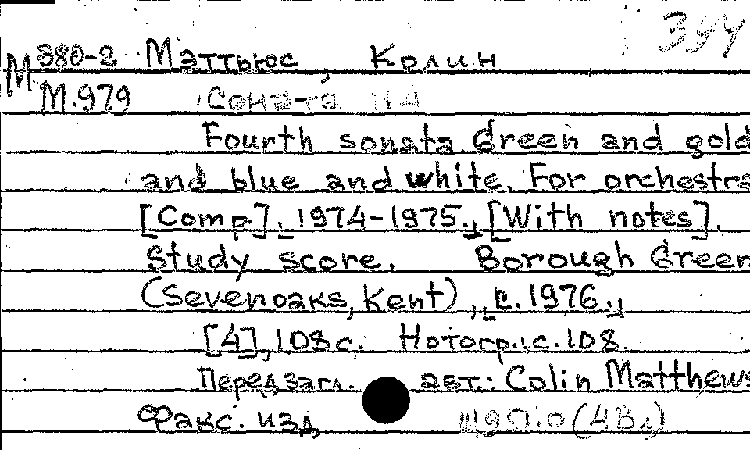 394
М 380-2 Мэттьюс, Колин
М.979 Соната №4
Fourth sonata Green and gold
and blue and white. For orchestra
[Comp]. 1974-1975., [With notes].
Study score. Borough Green
(Sevenoaks, Kent), [c. 1976.,
[4], 108 с. Нотогр.: с. 108
Перед загл. авт.: Colin Matthews
Факс. изд.